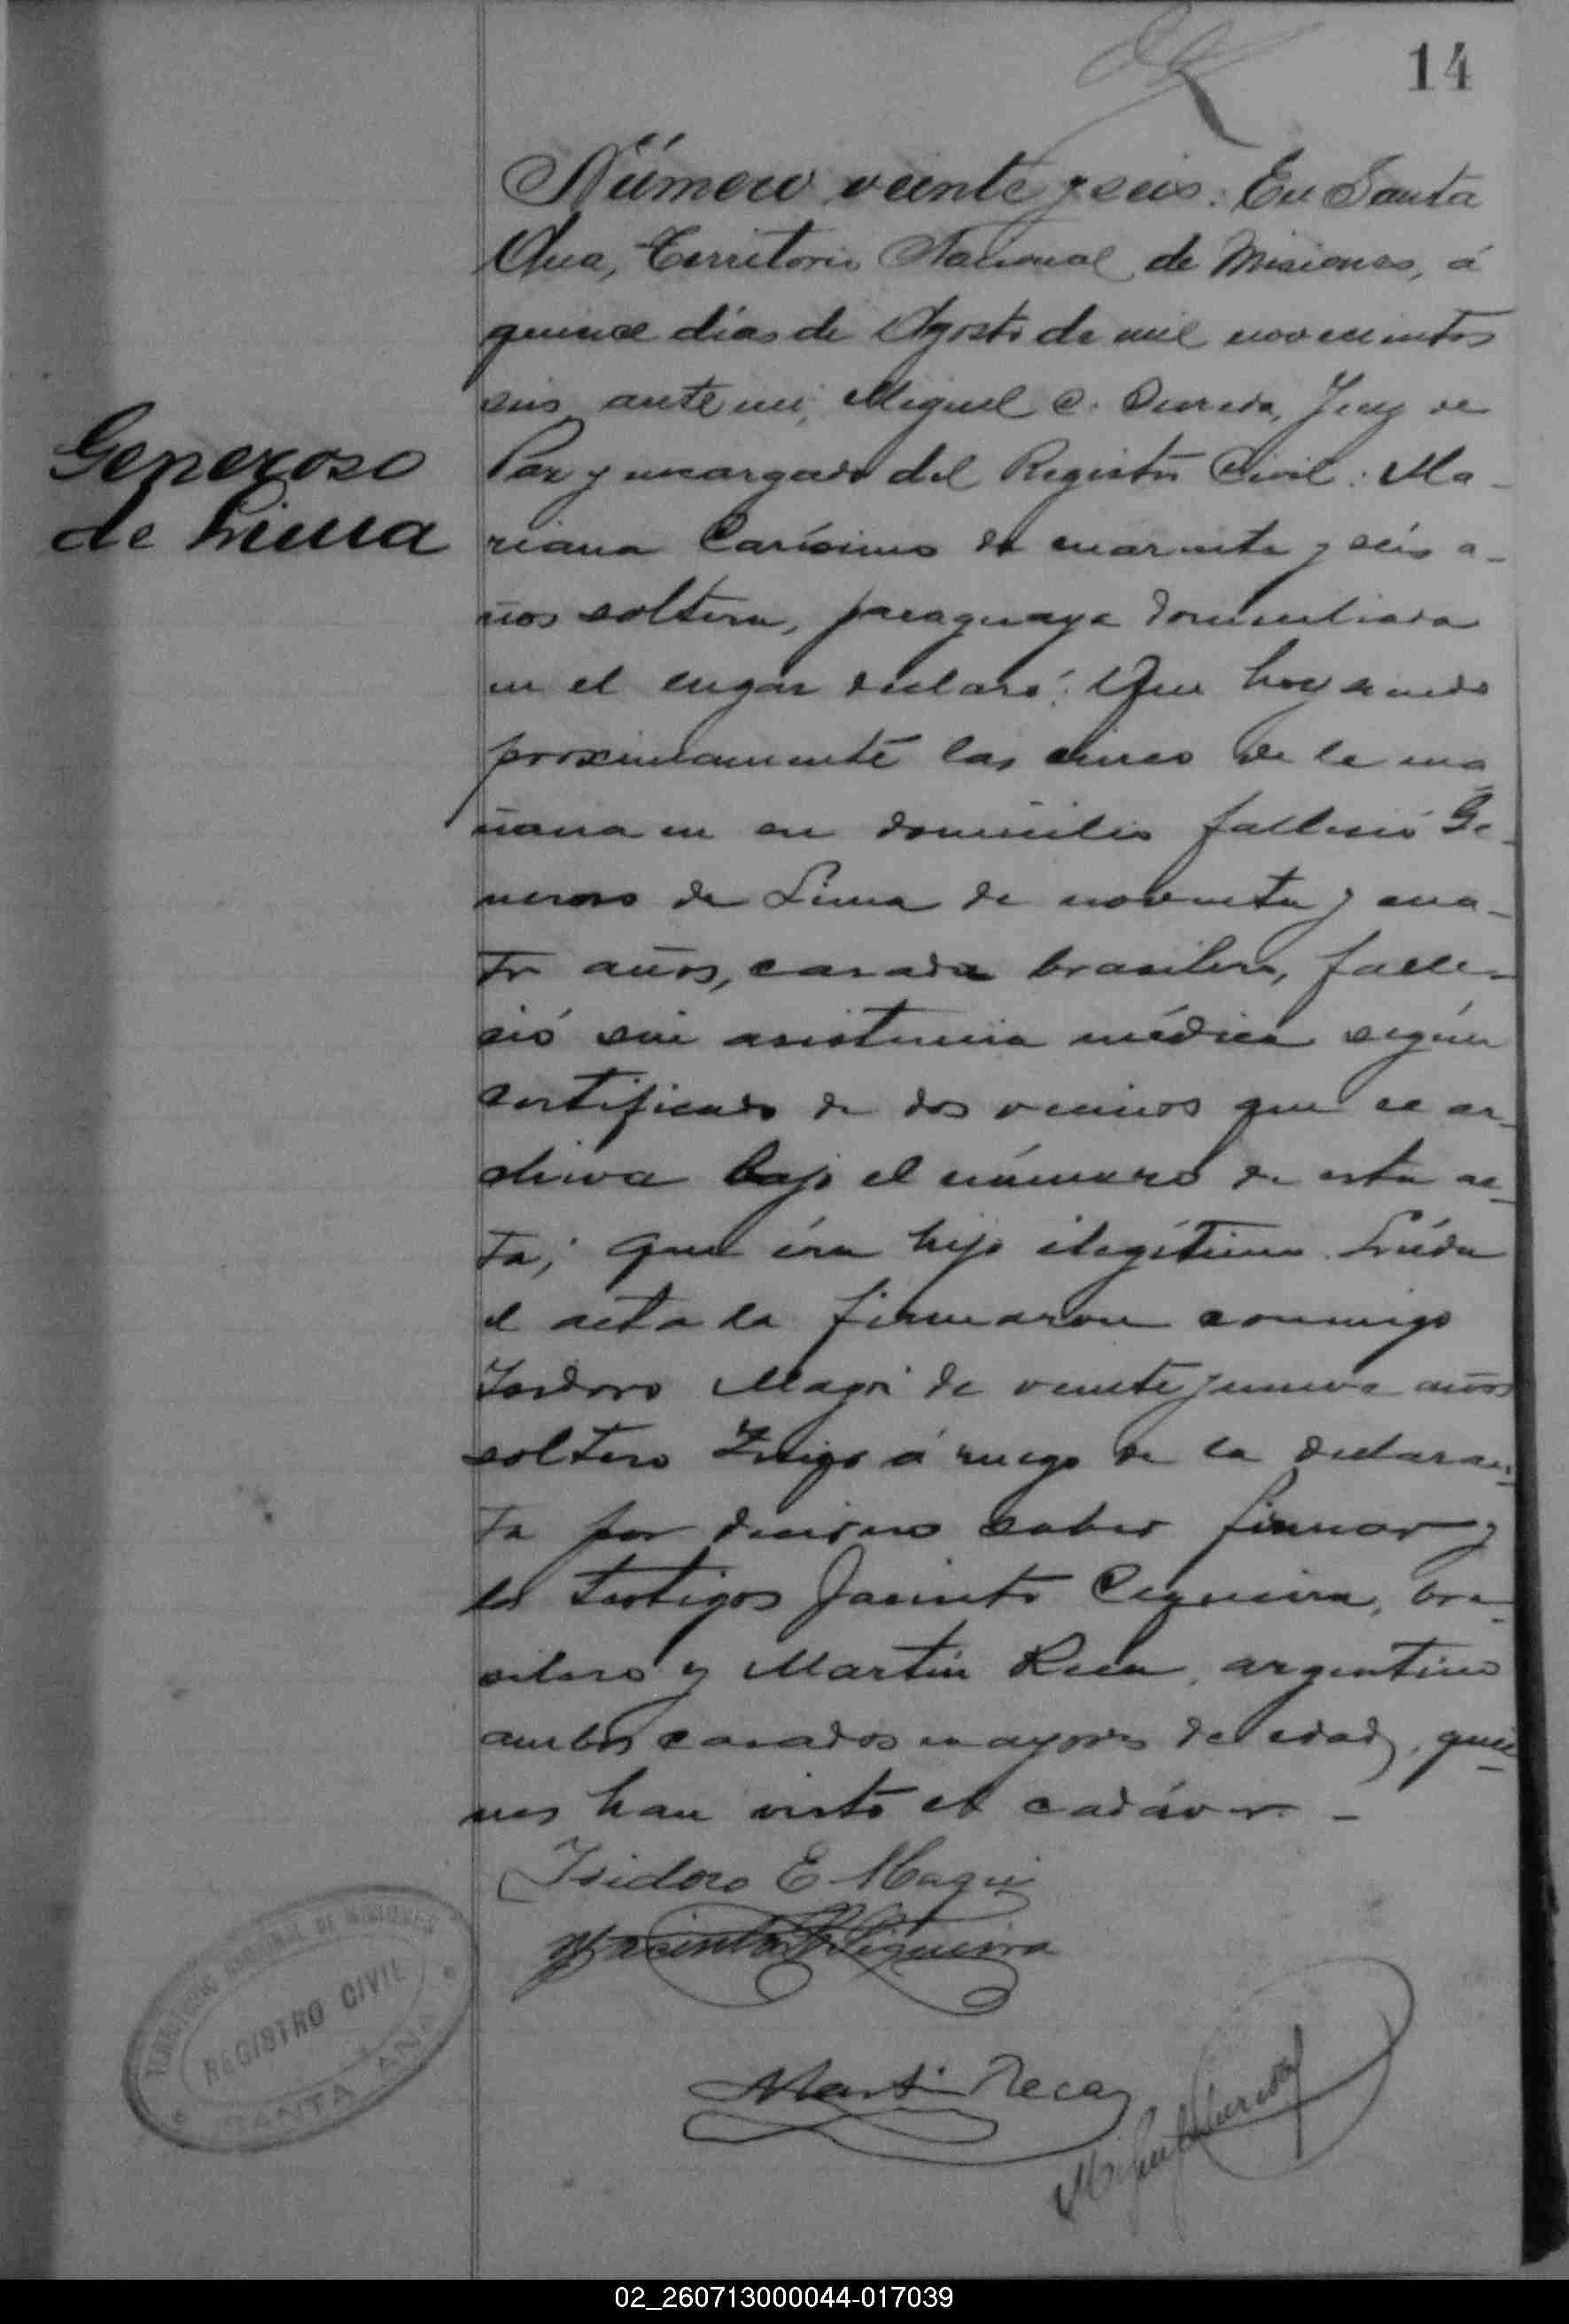 14
Número veinte y seis: En Santa
Ana, Territorio Nacional de Misiones, á
quince días de Agosto de mil novecientos
seis, ante mi, Miguel C. Juez de
Paz y encargado del Registro Civil: Ma-
Generoso
de Lima
riana Carísimo de cuarenta y seis a-
ños soltera, paraguaya domiciliada
en el lugar declaró: Que hoy siendo
proximamente las cinco de la ma
ñana en su domicilio falleció Ge-
neroso de Lima de noventa y cua-
tro años, casado brasilero, falle-
ció sin asistencia médica según
certificado de dos vecinos que se ar-
chiva bajo el número de esta ac-
ta; que éra hijo ilegítimo. Leída
el acta la firmaron conmigo
Isidoro Magri de veinte y nueve años
soltero á ruego de la declaran-
te por decir no saber firmar y
los testigos Jacinto Cequeira, bra-
silero y Martín Reca, argentino
ambos casados mayores de edad, quie-
nes han visto el cadáver. -
Isidoro E Magri
Jacinto Siqueira
Martin Reca
Miguel
TERRITORIO NACIONAL DE MISIONES
REGISTRO CIVIL
SANTA ANA
02_260713000044-017039